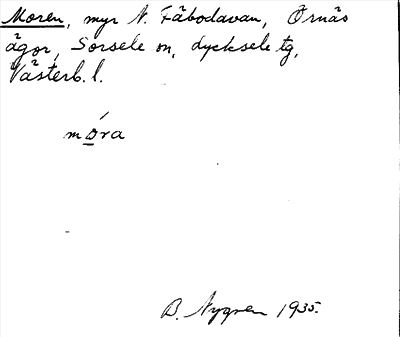 Moren, myr N. Fäbodavan, Örnäs
ägor, Sorsele sn, Lycksele tg,
Västerb. l.
móra
B. Nygren 1935.